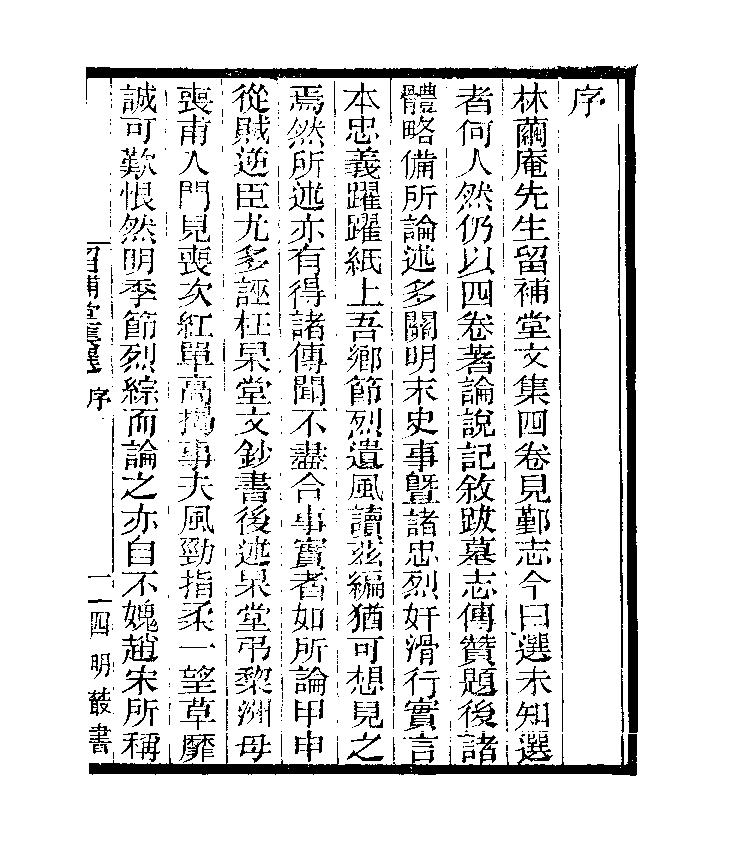 序
林繭庵先生留補堂文集四卷見鄞志今曰選未知選
者何人然仍以四卷著論說記敘跋墓志傳贊題後諸
體略備所論述多關明末史事曁諸忠烈奸滑行實言
本忠義躍躍紙上吾鄉節烈遺風讀茲編猶可想見之
焉然所述亦有得諸傳聞不盡合事實者如所論甲申
從賊逆臣尤多誣枉杲堂文鈔書後述杲堂弔黎洲母
喪甫入門見喪次紅單高揭事夫風勁指柔一望草靡
誠可歎恨然明季節烈綜而論之亦自不媿趙宋所稱
留補堂集選 序
一 四明叢書